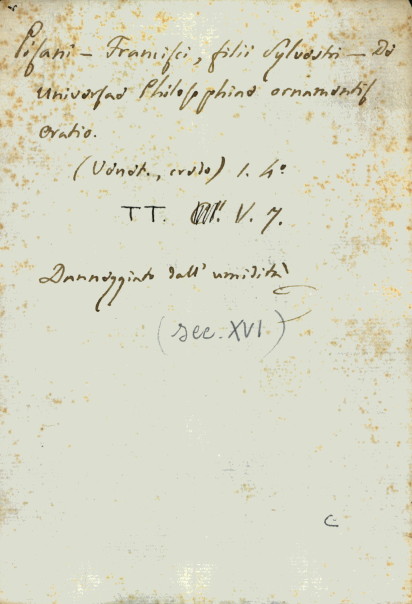 Pisani – Francisci, filii Sylvestri – De
universae Philosophiae ornamentis
oratio.
(Venet., credo) 1. 4º
TT. V. 7.
Danneggiato dall' umidità
(sec. XVI)
C